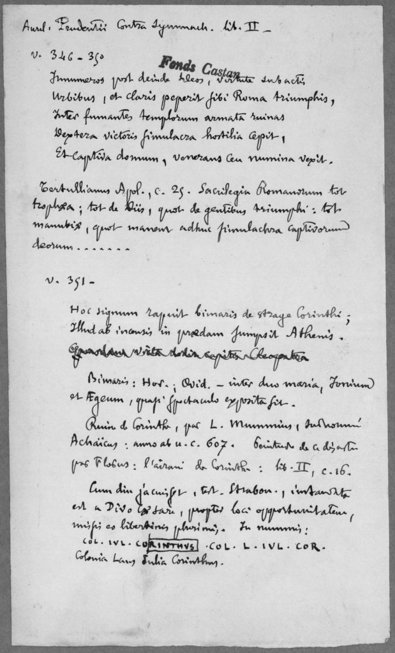 Aurel. Prudentii Contra Symmach. Lib. II
v. 346-350
Fonds Castan
Innumeros post deinde Deos, virtute subactis
Urbibus, et claris peperit sibi Roma triumphis,
Inter fumantes templorum armata ruinas
Dextera victoris simulacra hostilia cepit,
Et captiva domum, venerans ceu numina vexit.
Tertullianus Apol., c. 25. Sacrilegia Romanorum tot
trophæa; tot de Diis, quot de gentibus triumphi: tot
manubiæ, quot manent adhuc simulachra captivorum
deorum.......
v. 351-
Hoc signum rapuit bimaris de strage Corinthi;
Illud ab incensis in prædam sumpsit Athenis.
Quasdam victa dedit capitis Cleopatra
Bimaris: Hor.; Ovid. - inter duo maria, Ionium
et Ægeum, quasi spectaculo exposita sit.
Ruine de Corinthe, par L. Mummius, surnommé
Achaïcus: anno ab u. c. 607. Peinture de ce désastre
par Florus: l'airain de Corinthe: lib. II, c. 16.
Cum diu jacuisset, test. Strabon., instaurata
est a Divo Cæsare, propter loci opportunitatem,
missis eo libertinis plurimis. In nummis:
COL. IVL. CORINTHVS. COL. L. IVL. COR.
Colonia Laus Julia Corinthus.